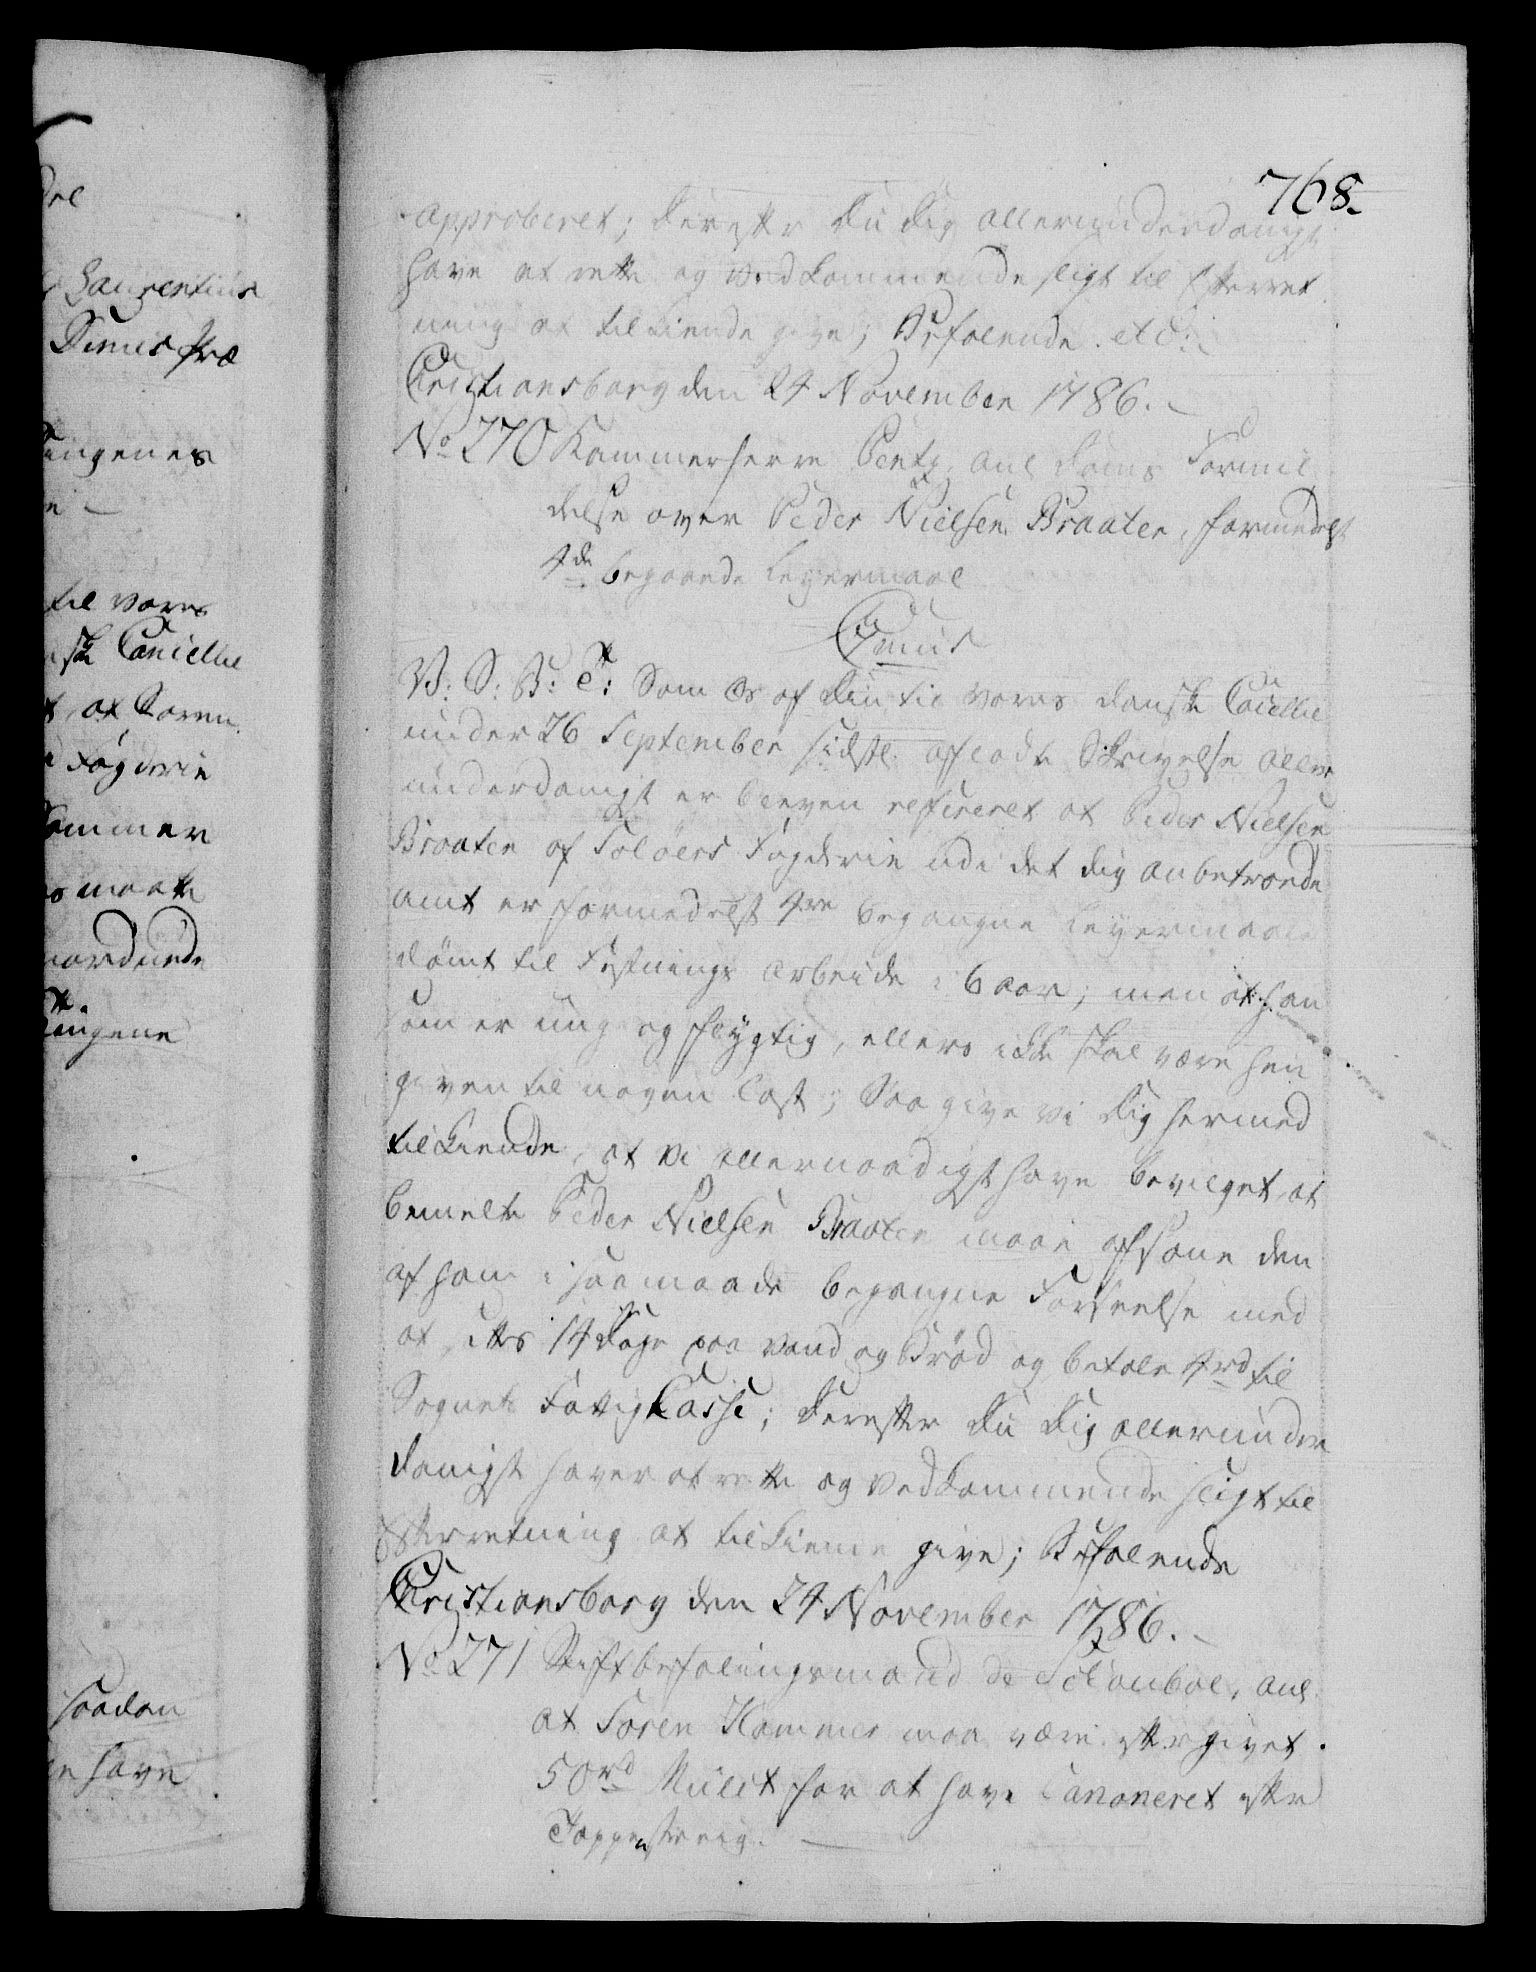 768.
approberet; derefter Du Dig allerunderdanigst
have at rette og vedkommende sligt til Efterret
ning at tilkiende give; Befalende etc:
Christiansborg den 24 November 1786.
No 270 Kammerherre Pentz, anl Doms Formil
delse over Peder Nielsen Braaten, formedelst
4de begaaede Leyermaal
C 7mus
V: S: B: T: Som Os af Din til vores danske Cancellie
under 26 September sidstl: afladte Skrivelse aller
underdanigst er bleven refereret at Peder Nielsen
Braaten af Soløers Fogderie udi det dig anbetroede
amt er formedelst 4re begangne Leyermaale
dømt til Festnings Arbeide i 6 aar; men at han
som er ung og flygtig, ellers ikke skal være hen
given til nogen Last; Saa give vi Dig hermed
tilkiende, at vi allernaadigst have bevilget, at
bemelte Peder Nielsen Braaten maae afsone den
af ham i saa maade begangne Forseelse med
at sættes 14 Dage paa vand og Brød og betale 4rd til
Sognets Fattig Casse; derefter Du Dig allerunder
danigst haver at rette og vedkommende sligt til
Efterretning at tilkiende give; Befalende
Christiansborg den 24 November 1786.
No 271 Stiftbefalingsmand de Schouboe, anl
at Søren Hammer maa være eftergivet
50rd Mulct for at have Canoneret efter
Tappenstreig.

til vores
Cancellie
at Søren
Fogderie
maatte
saadan
have